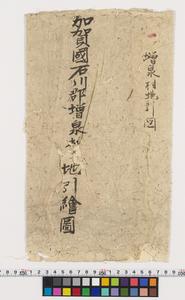 増泉村地引図
加賀國石川郡増泉村地引繪圖